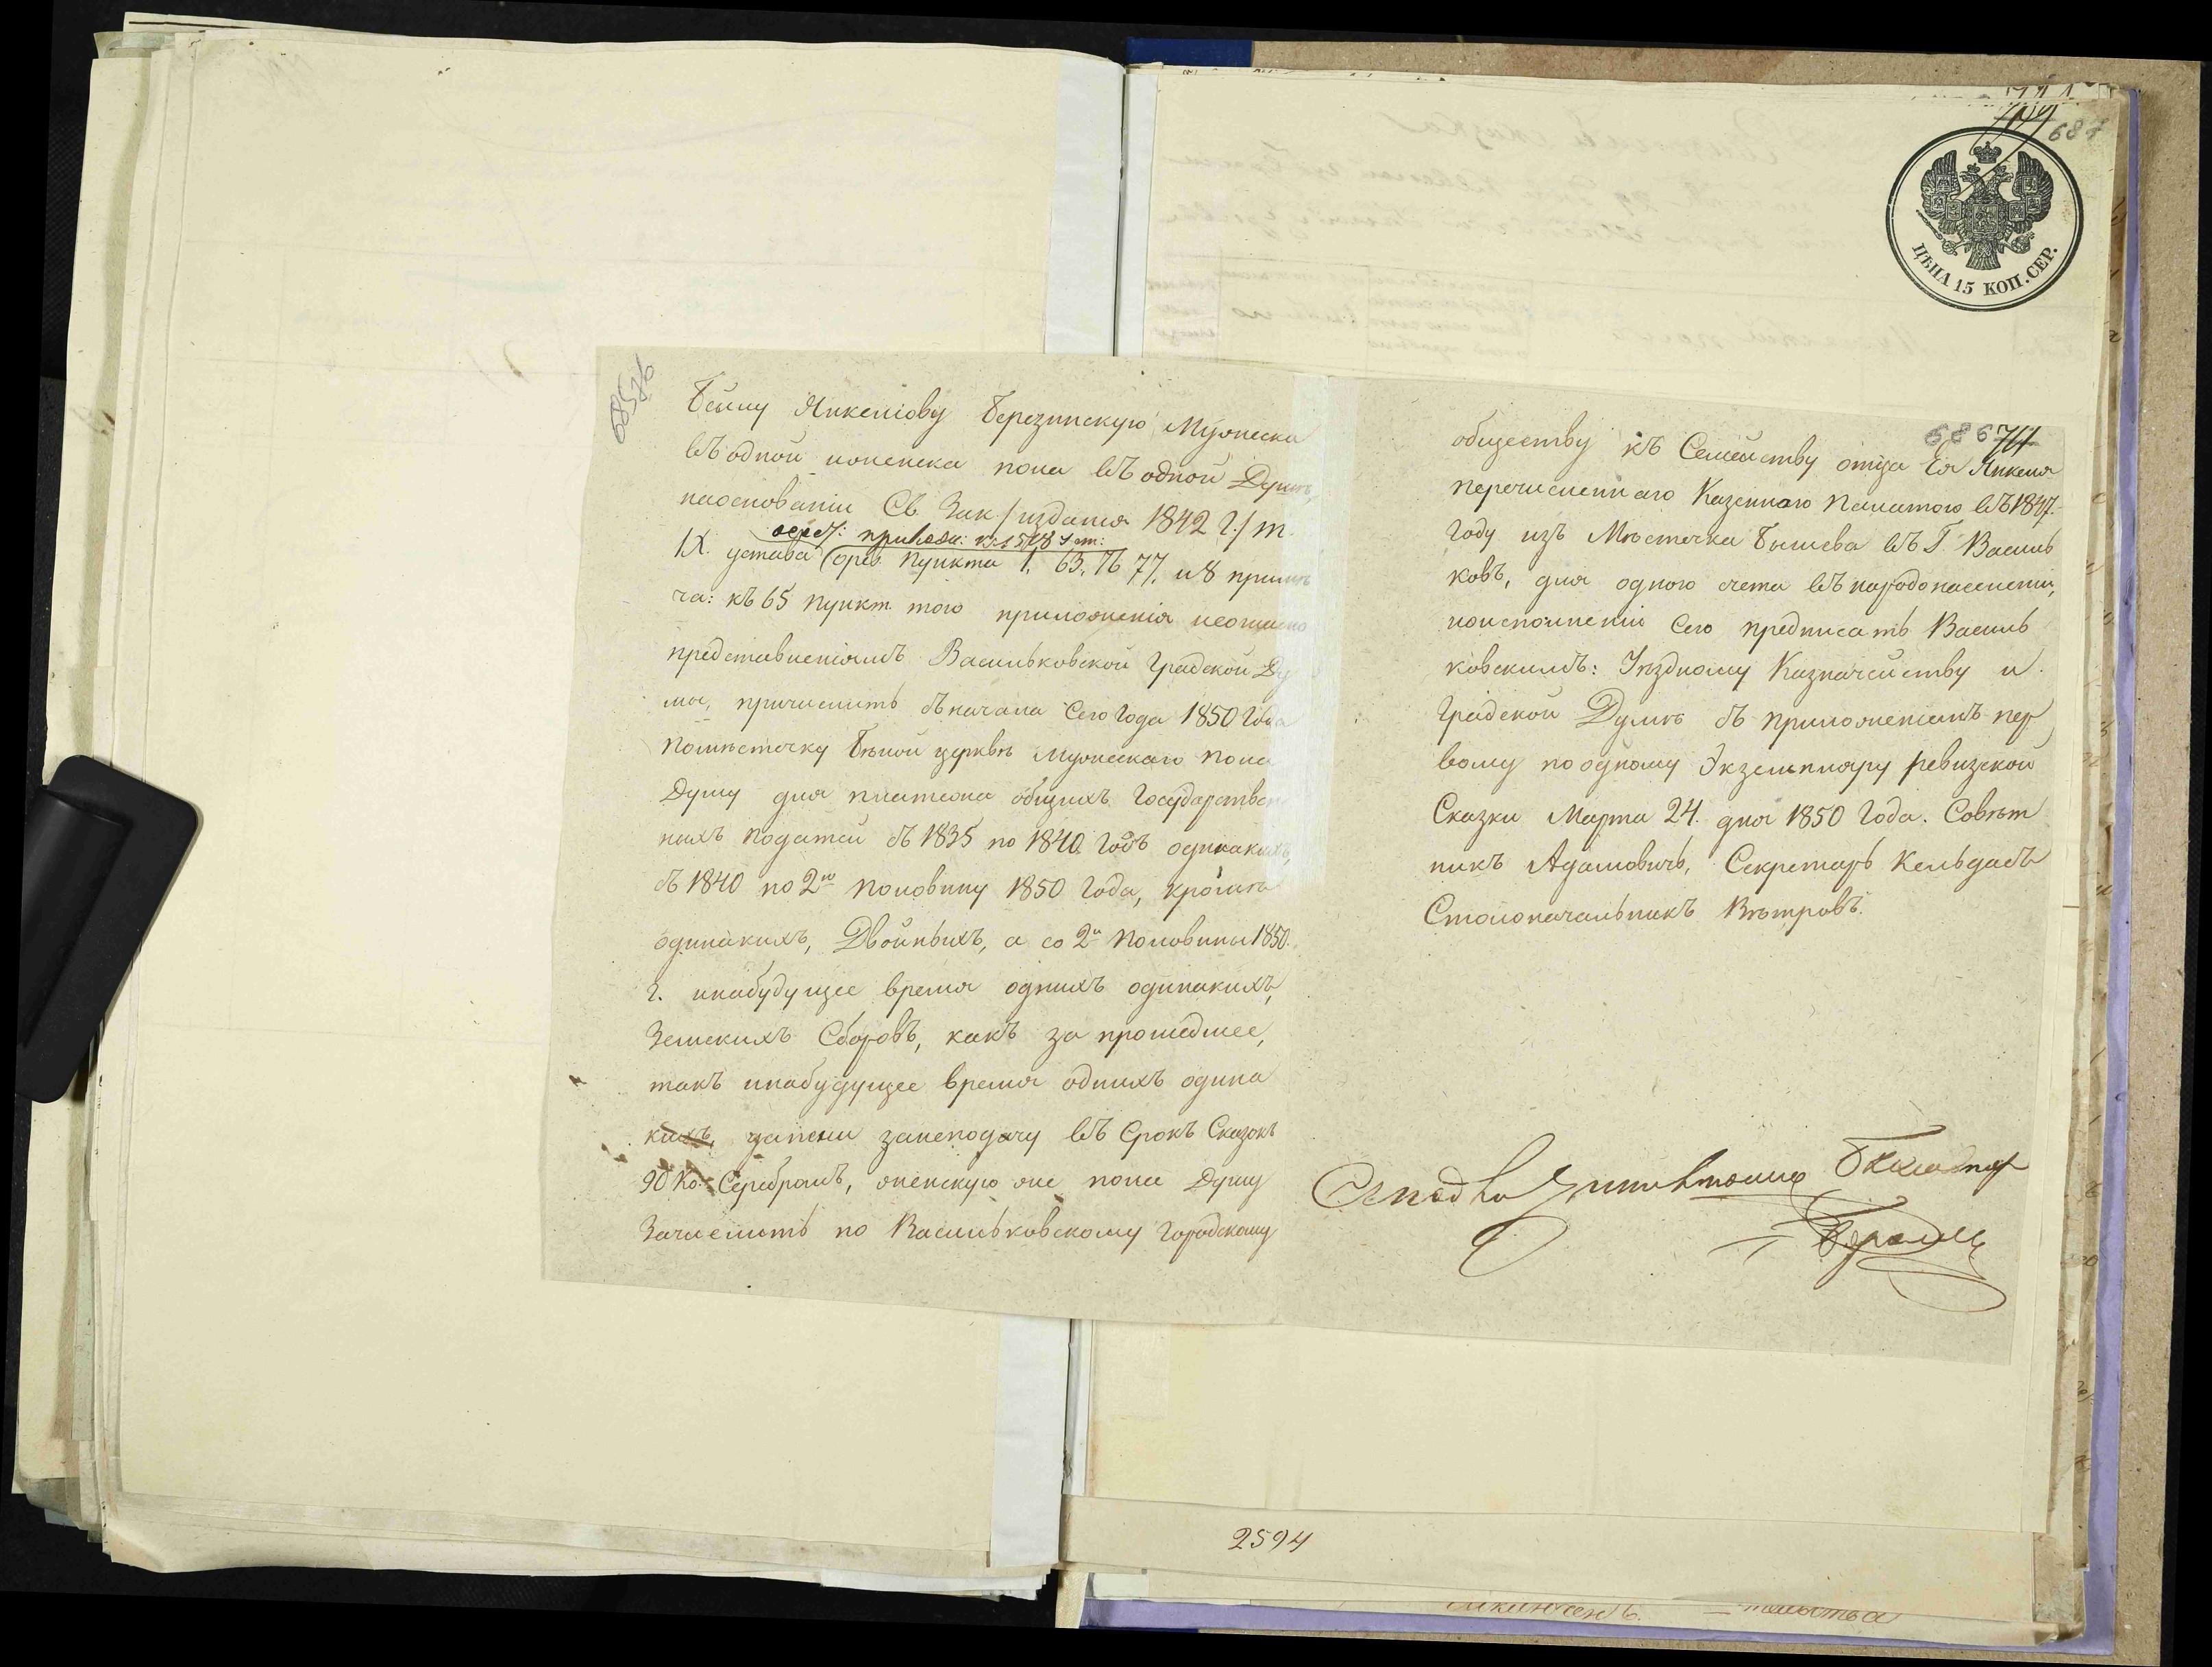 687
ЦѢНА 15 КОП. СЕР.
685 7б
Бейлу Янкеліову Березинскую Мужеска
въ одной иженска пола въ одной Душѣ,
наоснованіи Св. Зак. /изданія 1842 г./ т.
IX. устава о рев. Пункта 1, 63, 76 77, и 8 примѣ
ча: къ 65 пункт. того приложенія
представленіямъ Васильковской Градской Ду
мы, причислить съ начала Сего Года 1850 Года
помѣстечку Бѣлой церквѣ Мужескаго пола
Душу для платежа общихъ Государствен
ныхъ податей съ 1835 по 1840 Годъ одинакихъ,
съ 1840 по 2ю половину 1850 Года, кромѣ
одинакихъ, Двойныхъ, а со 2й половины 1850.
г. инабудущее время однихъ одинакихъ,
Земскихъ Сборовъ, какъ за прошедшее,
такъ инабудущее время однихъ одина
кихъ, запени занеподачу въ Срокъ Сказокъ
90 Ко. Серебромъ, женскую же пола Душу
Зачислить по Васильковскому Городскому
686
обществу къ Семейству отца Ея Янкеля
перечисленнаго Казенною Палатою въ 1847.
году изъ Мѣстечка Бышева въ Г. Василь
ковъ, для одного счета въ народонаселеніи,
поисполненіи Сего предписать Василь
ковскимъ: Уѣздному Казначейству и
Градской Думѣ съ приложеніемъ пер
вому по одному Экземпляру ревизской
Сказки Марта 24. дня 1850 Года. Совѣт
никъ Адамовичъ, Секретарь Кельдасъ
Столоначальникъ Вѣтровъ.
2594